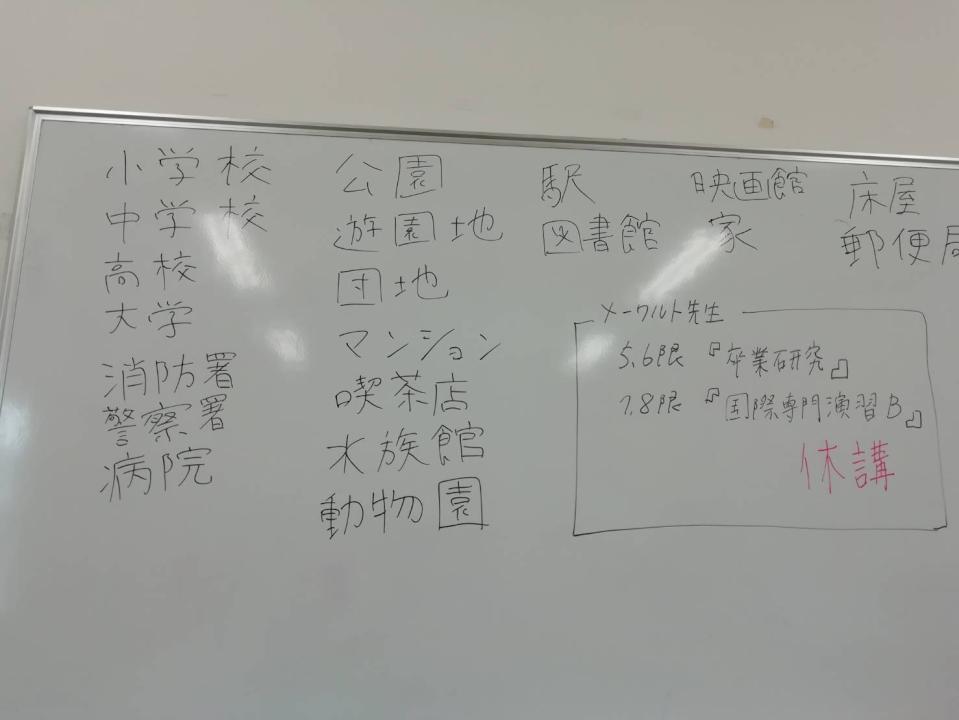 小学校
中学校
高校
大学
消防署
警察署
病院
公園
遊園地
団地
マンション
喫茶店
水族館
動物園
駅
図書館
映画館
家
床屋
郵便局
メークルト先生
5.6限『卒業研究』
7.8限『国際専門演習B』
休講